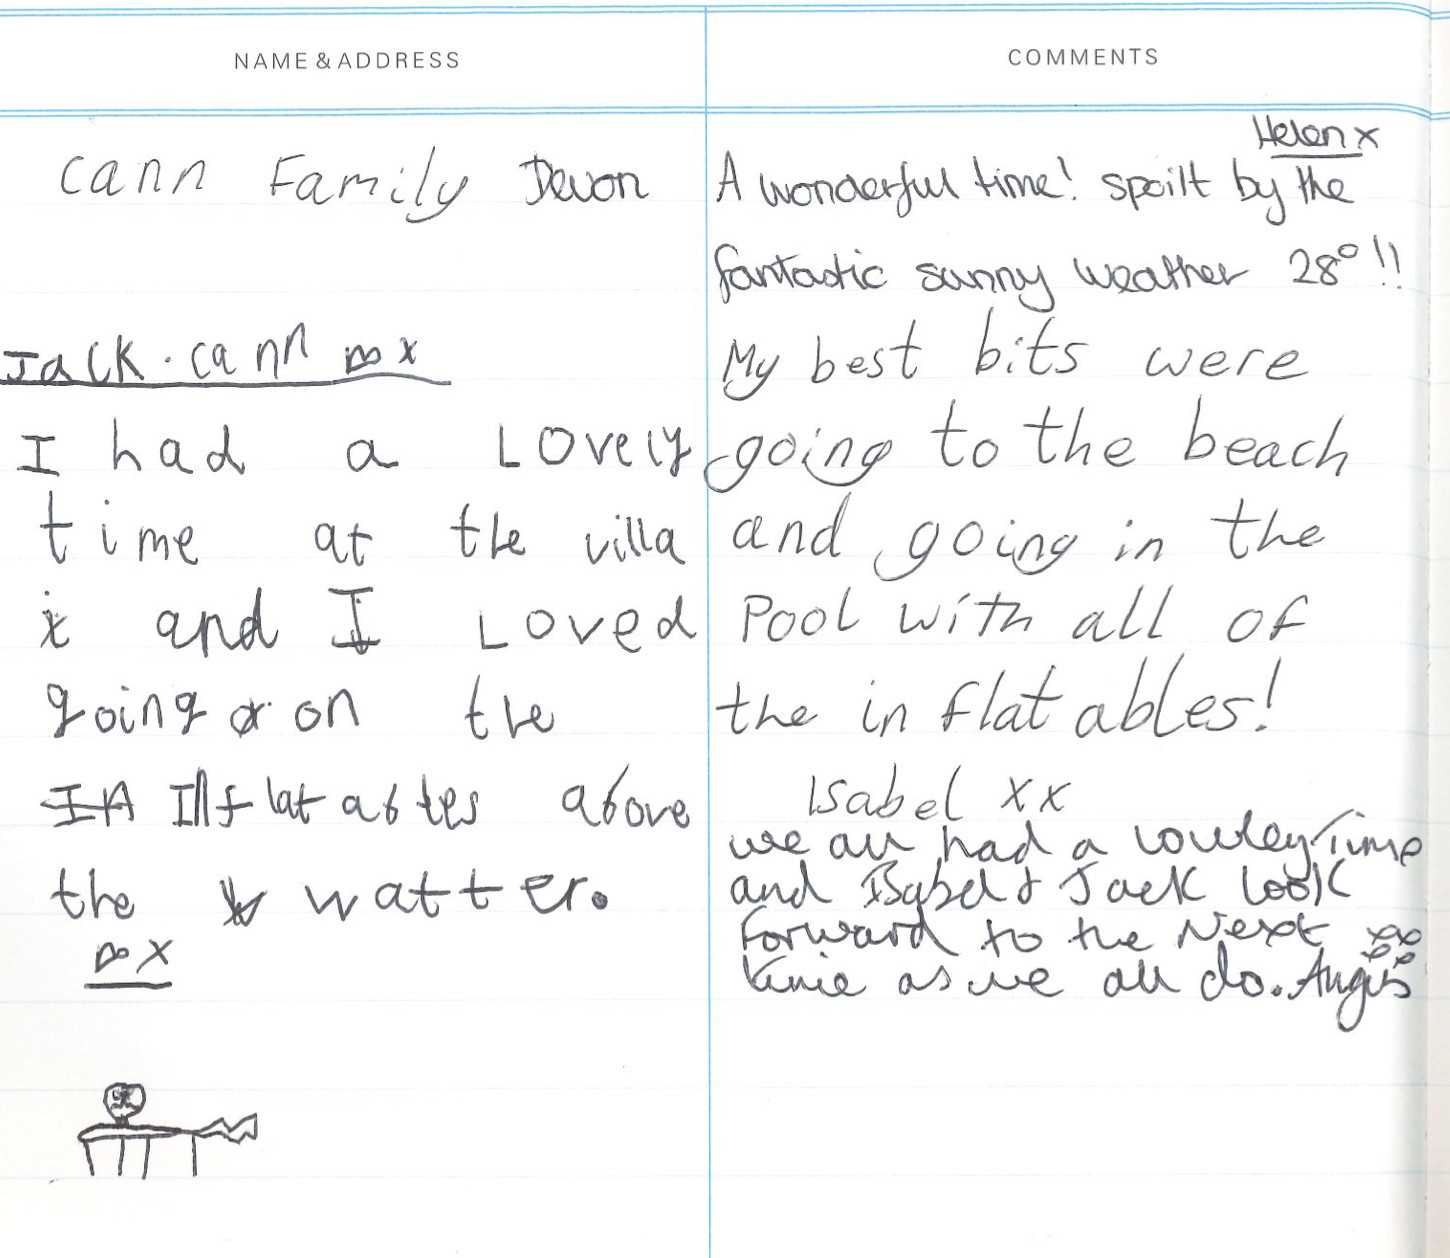 NAME & ADDRESS
COMMENTS
Cann Family Devon
Jack.cann x
I had a LOvely
time at the villa
and I Loved
going on the
Inflatables above
the watter.
x
Helen x
A wonderful time! spoilt by the
fantastic sunny weather 28° !!
My best bits were
going to the beach
and going in the
Pool with all of
the inflatables!
Isabel xx
we all had a lovley Time
and Isabel & Jack look
Forward to the Next
time as we all do. Angus